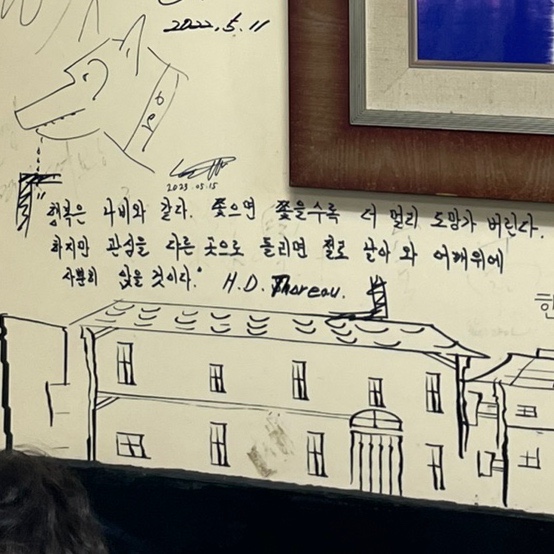 2022.5.11
2023.05.15
"행복은 나비와 같다. 쫓으면 쫓을수록 더 멀리 도망가 버린다.
하지만 관심을 다른 곳으로 돌리면 절로 날아 와 어깨위에
사뿐히 앉을 것이다."  H.D. Thoreau.